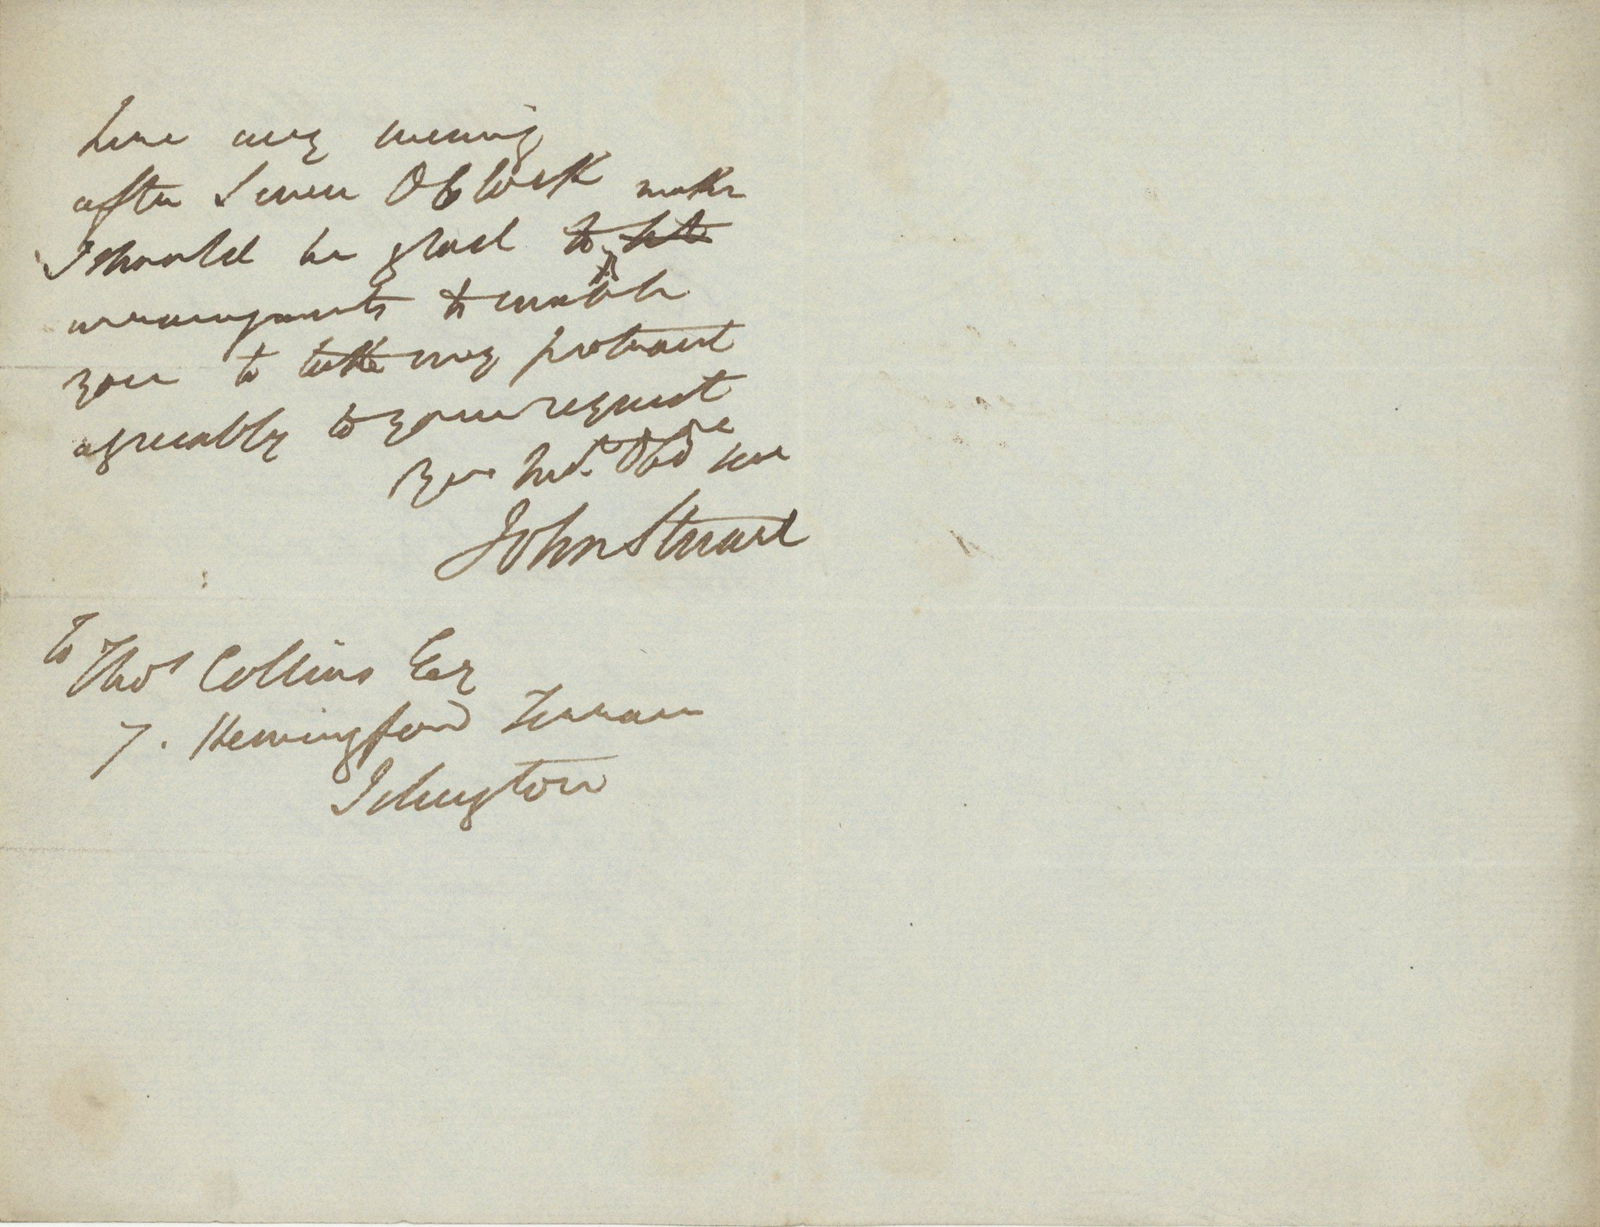 here any evening
after Seven O Clock make
I should be glad to
arrangements to enable
you to take my portrait
agreeably to your request
Your hue. Obd Ser
John Stuart
To Thos Collins Esq
7. Hemingford Terrace
Islington